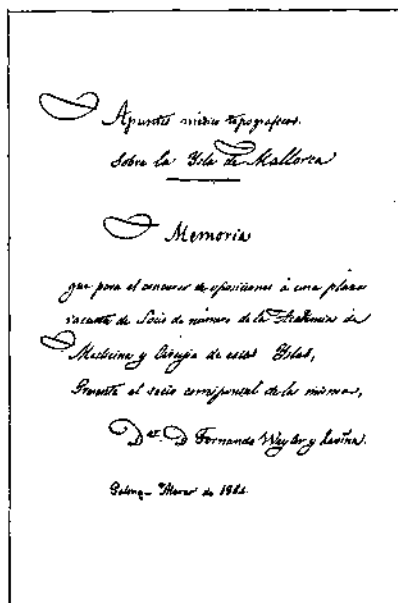 Apuntes médico topograficos.
Sobre la Ysla de Mallorca
Memoria
que para el concurso de oposiciones á una plaza
vacante de Socio de número de la Academia de
Medicina y Cirugía de estas Yslas,
Presenta el socio corresponsal de la misma,
Dor. D Fernando Weyler y Laviña.
Palma